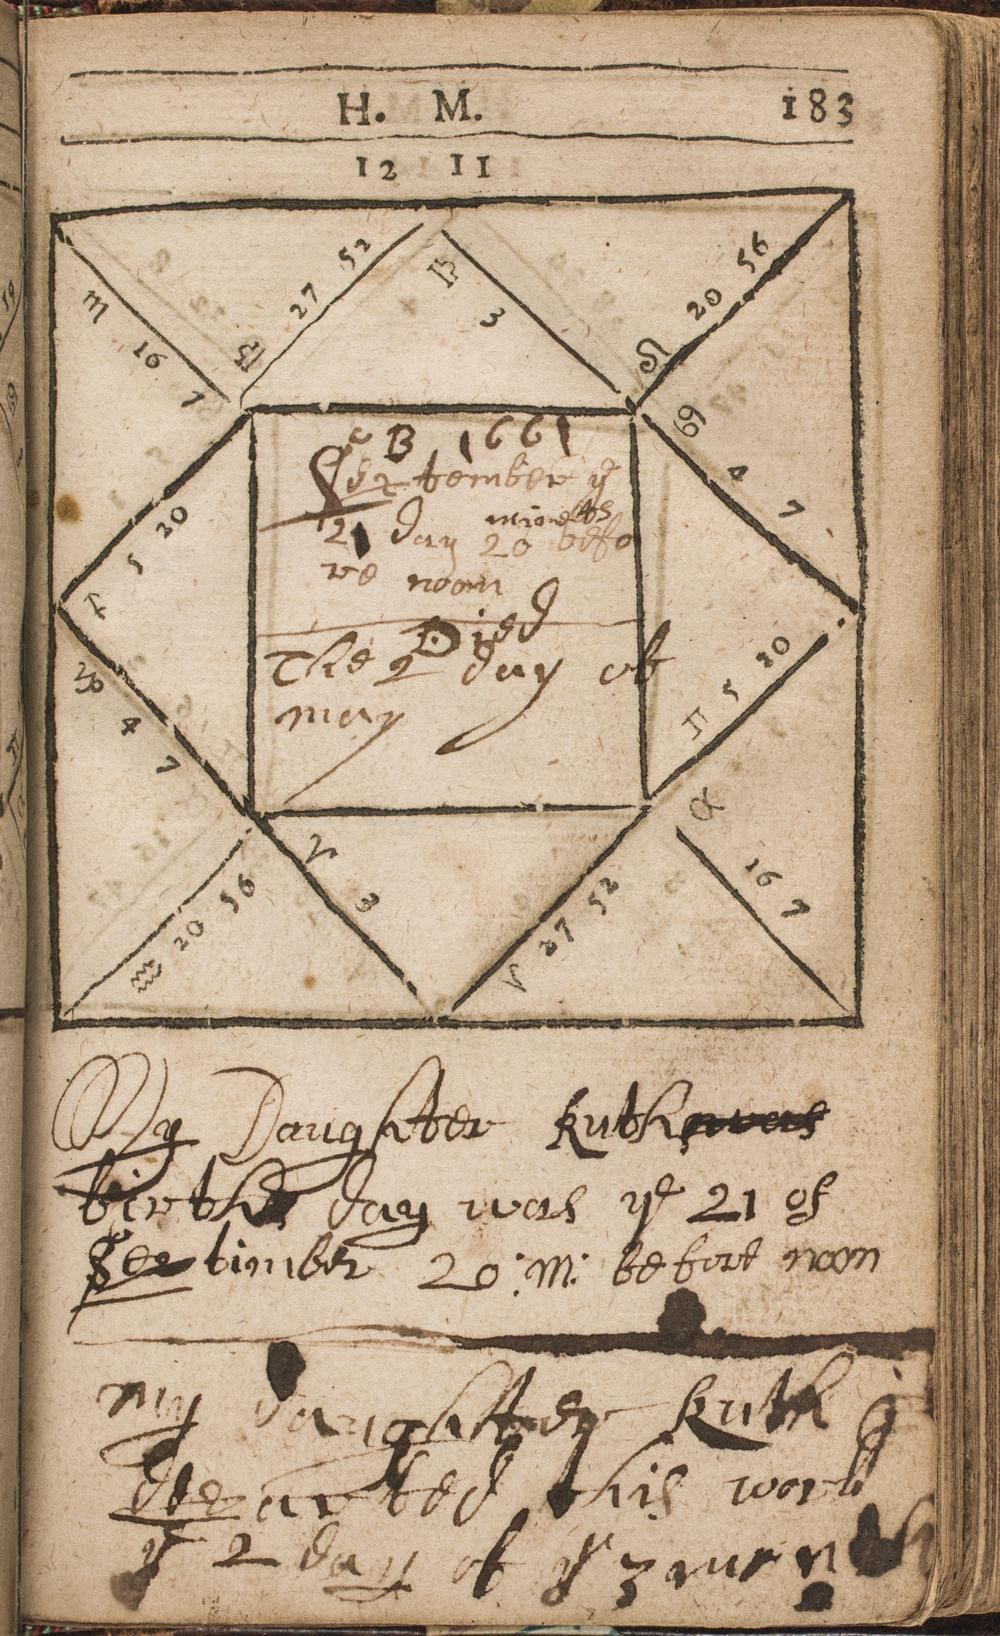 H. M. 183
12 11
♏ 16 7
♎ 27 52
♍ 3
♌ 20 56
♋ 4 7
♐ 5 20
♑ 4 7
♊ 5 20
♉ 16 7
♒ 20 56
♓ 3
♈ 27 52
B 1661
September ye
21 day 20 minetts befo
re noon
Died
The 2 day of
may
My Daughter Ruth was
births day was ye 21 of
Septimber 20 : M : before noon
my daughter Ruth
departed this world
ye 2 day of ye 3